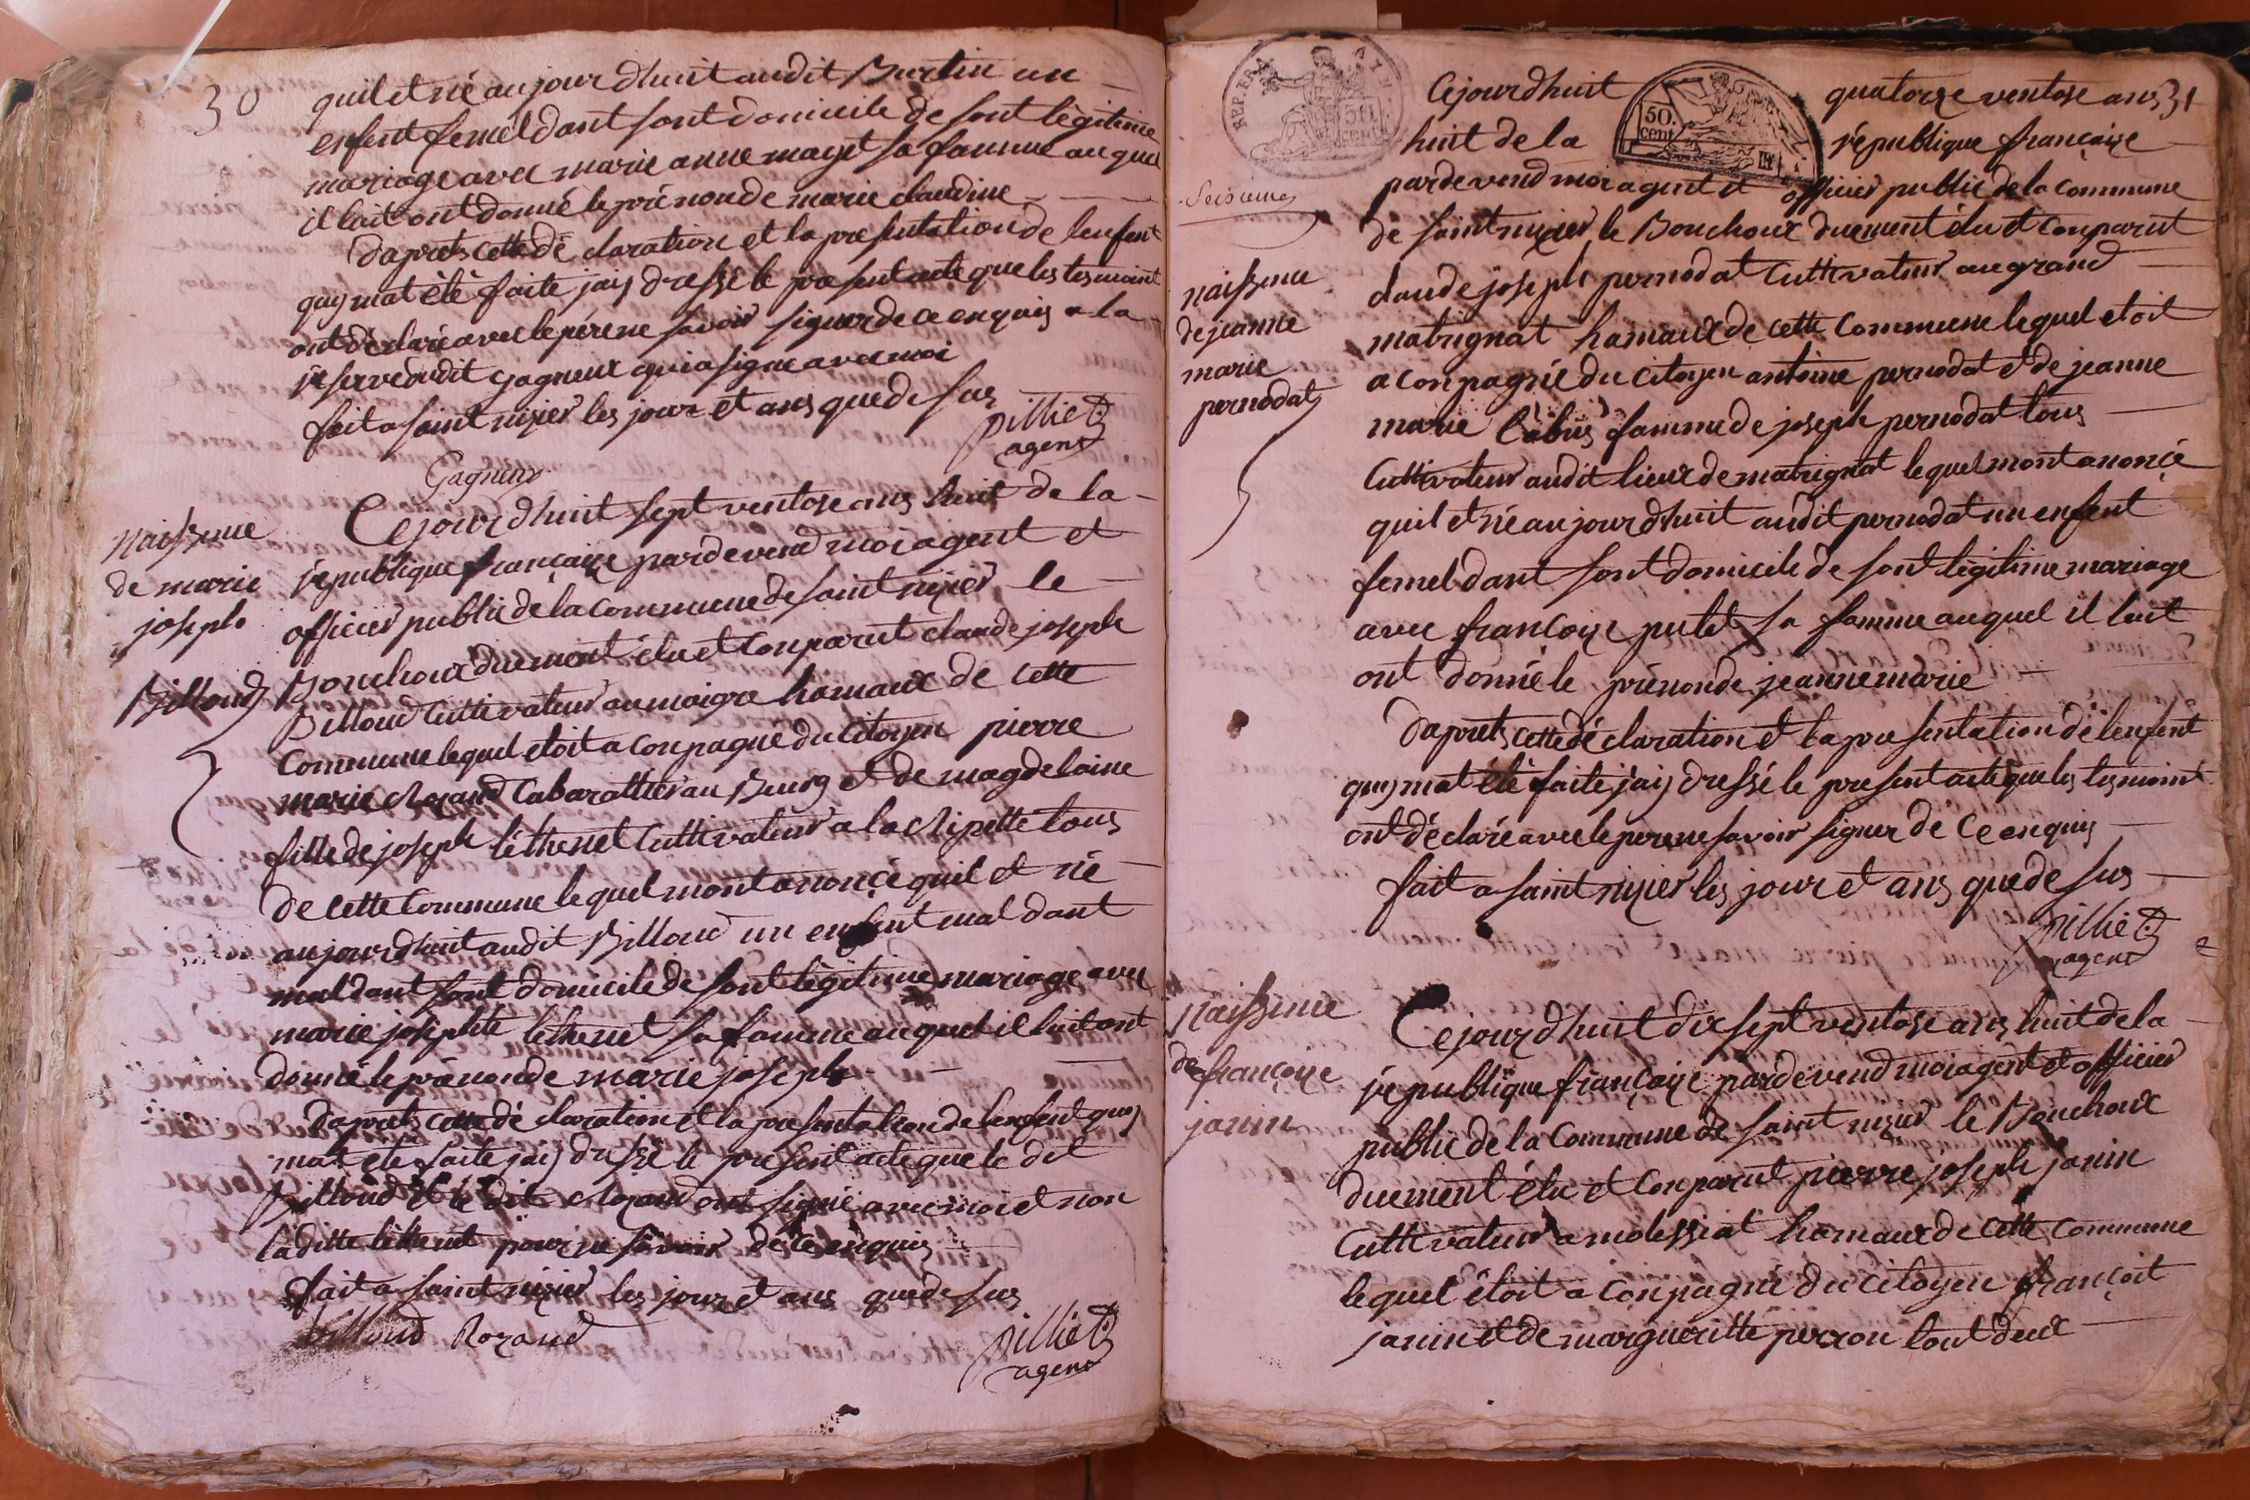 30
quil et né aujourdhuit audit Burtin un
enfent femel dant sont domicile de sont légitime
mariage avec marie anne mayet sa famme auquel
il lait ont donné le prénon de marie claudine
daprets cette déclaration et la presentation de lenfent
quy mat été faite jay dressé le present acte que les tesmoint
ont déclaré avec le pére ne savoir signer de ce enquis a la
réserve dudit gagneur qui a signe avec moi
fait a saint nizier les jour et ans que de sus
pilliet
agent
Gagneur
naissence
de marie
joseph
Billoud
Cejourdhuit sept ventose ans huit de la
republique françaize pardevend moi agent et
officier public de la commune de saint nizier le
Bouchoux duement élu et conparut claude joseph
Billoud cultivateur au maigra hamaux de cette
commune lequel etoit aconpagné du citoyen pierre
marie Rozand cabarattier au Bourg et de magdelaine
fille de joseph léthenet cultivateur a la Ripette tous
de cette commune lequel mont anoncé quil et né
aujourdhuit audit Billoud un enfent mal dant
mal dant sont domicile de sont légitime mariage avec
marie josephte lethenet sa famme auquel il lait ont
donné le prénon de marie joseph
daprets cette déclaration et la presentation de lenfent quy
mat été faite jay dressé le present acte que le dit
Billoud et le dit Rozand ont signé avec moi et non
laditte léthenet pour ne savoir de ce enquis
fait a saint nizier les jour et ans que de sus
billoud Rozand
pilliet
agent
REP. FRA
50.
cent
50.
cent
31
naissence
de jeanne
marie
pernodat
Cejourdhuit quatorze ventose ans
huit de la république françaize
pardevend moi agent et officier public de la commune
de saint nizier le Bouchoux duement élu et conparut
claude joseph pernodat cultivateur au grand
matrignat hamaux de cette commune lequel etoit
aconpagné du citoyen antoine pernodat et de jeanne
marie labus famme de joseph pernodat tous
cultivateur audit lieux de matrignat lequel mont anoncé
quil et né aujourdhuit audit pernodat un enfent
femel dant sont domicile de sont légitime mariage
avec françoize putet sa famme auquel il lait
ont donné le prénon de jeanne marie
daprets cette déclaration et la presentation de lenfent
quy mat été faite jay dressé le present acte que les tesmoint
ont déclaré avec le pere ne savoir signer de ce enquis
fait a saint nizier les jour et ans que de sus
pilliet
agent
naissence
de françoize
janin
Cejourdhuit dix sept ventose ans huit de la
republique françaize pardevend moi agent et officier
public de la commune de saint nizier le Bouchoux
duement élu et conparut pierre joseph janin
cultivateur a molissiat hamaux de cette commune
lequel étoit aconpagné du citoyen françoit
janin et de margueritte perron tout deux